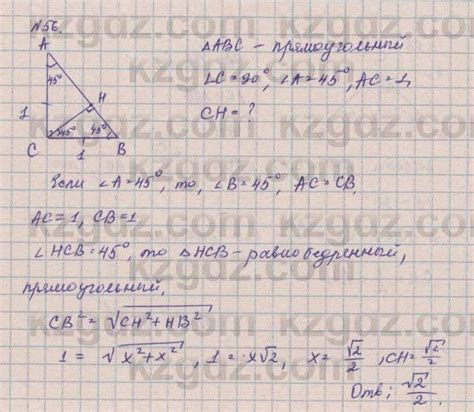 №56.
A
45°
1
H
C
45°
45°
1
B
△ABC – прямоугольный
∠C=90°, ∠A=45°, AC=1,
CH = ?
Если ∠A=45°, то, ∠B=45°, AC=CB,
AC=1, CB=1
∠HCB=45°, то △HCB – равнобедренный,
прямоугольный,
CB² = √(CH²+HB²)
1 = √(x²+x²), 1= x√2, x= √2/2, CH= √2/2
Отв; √2/2.
kzgdz.com